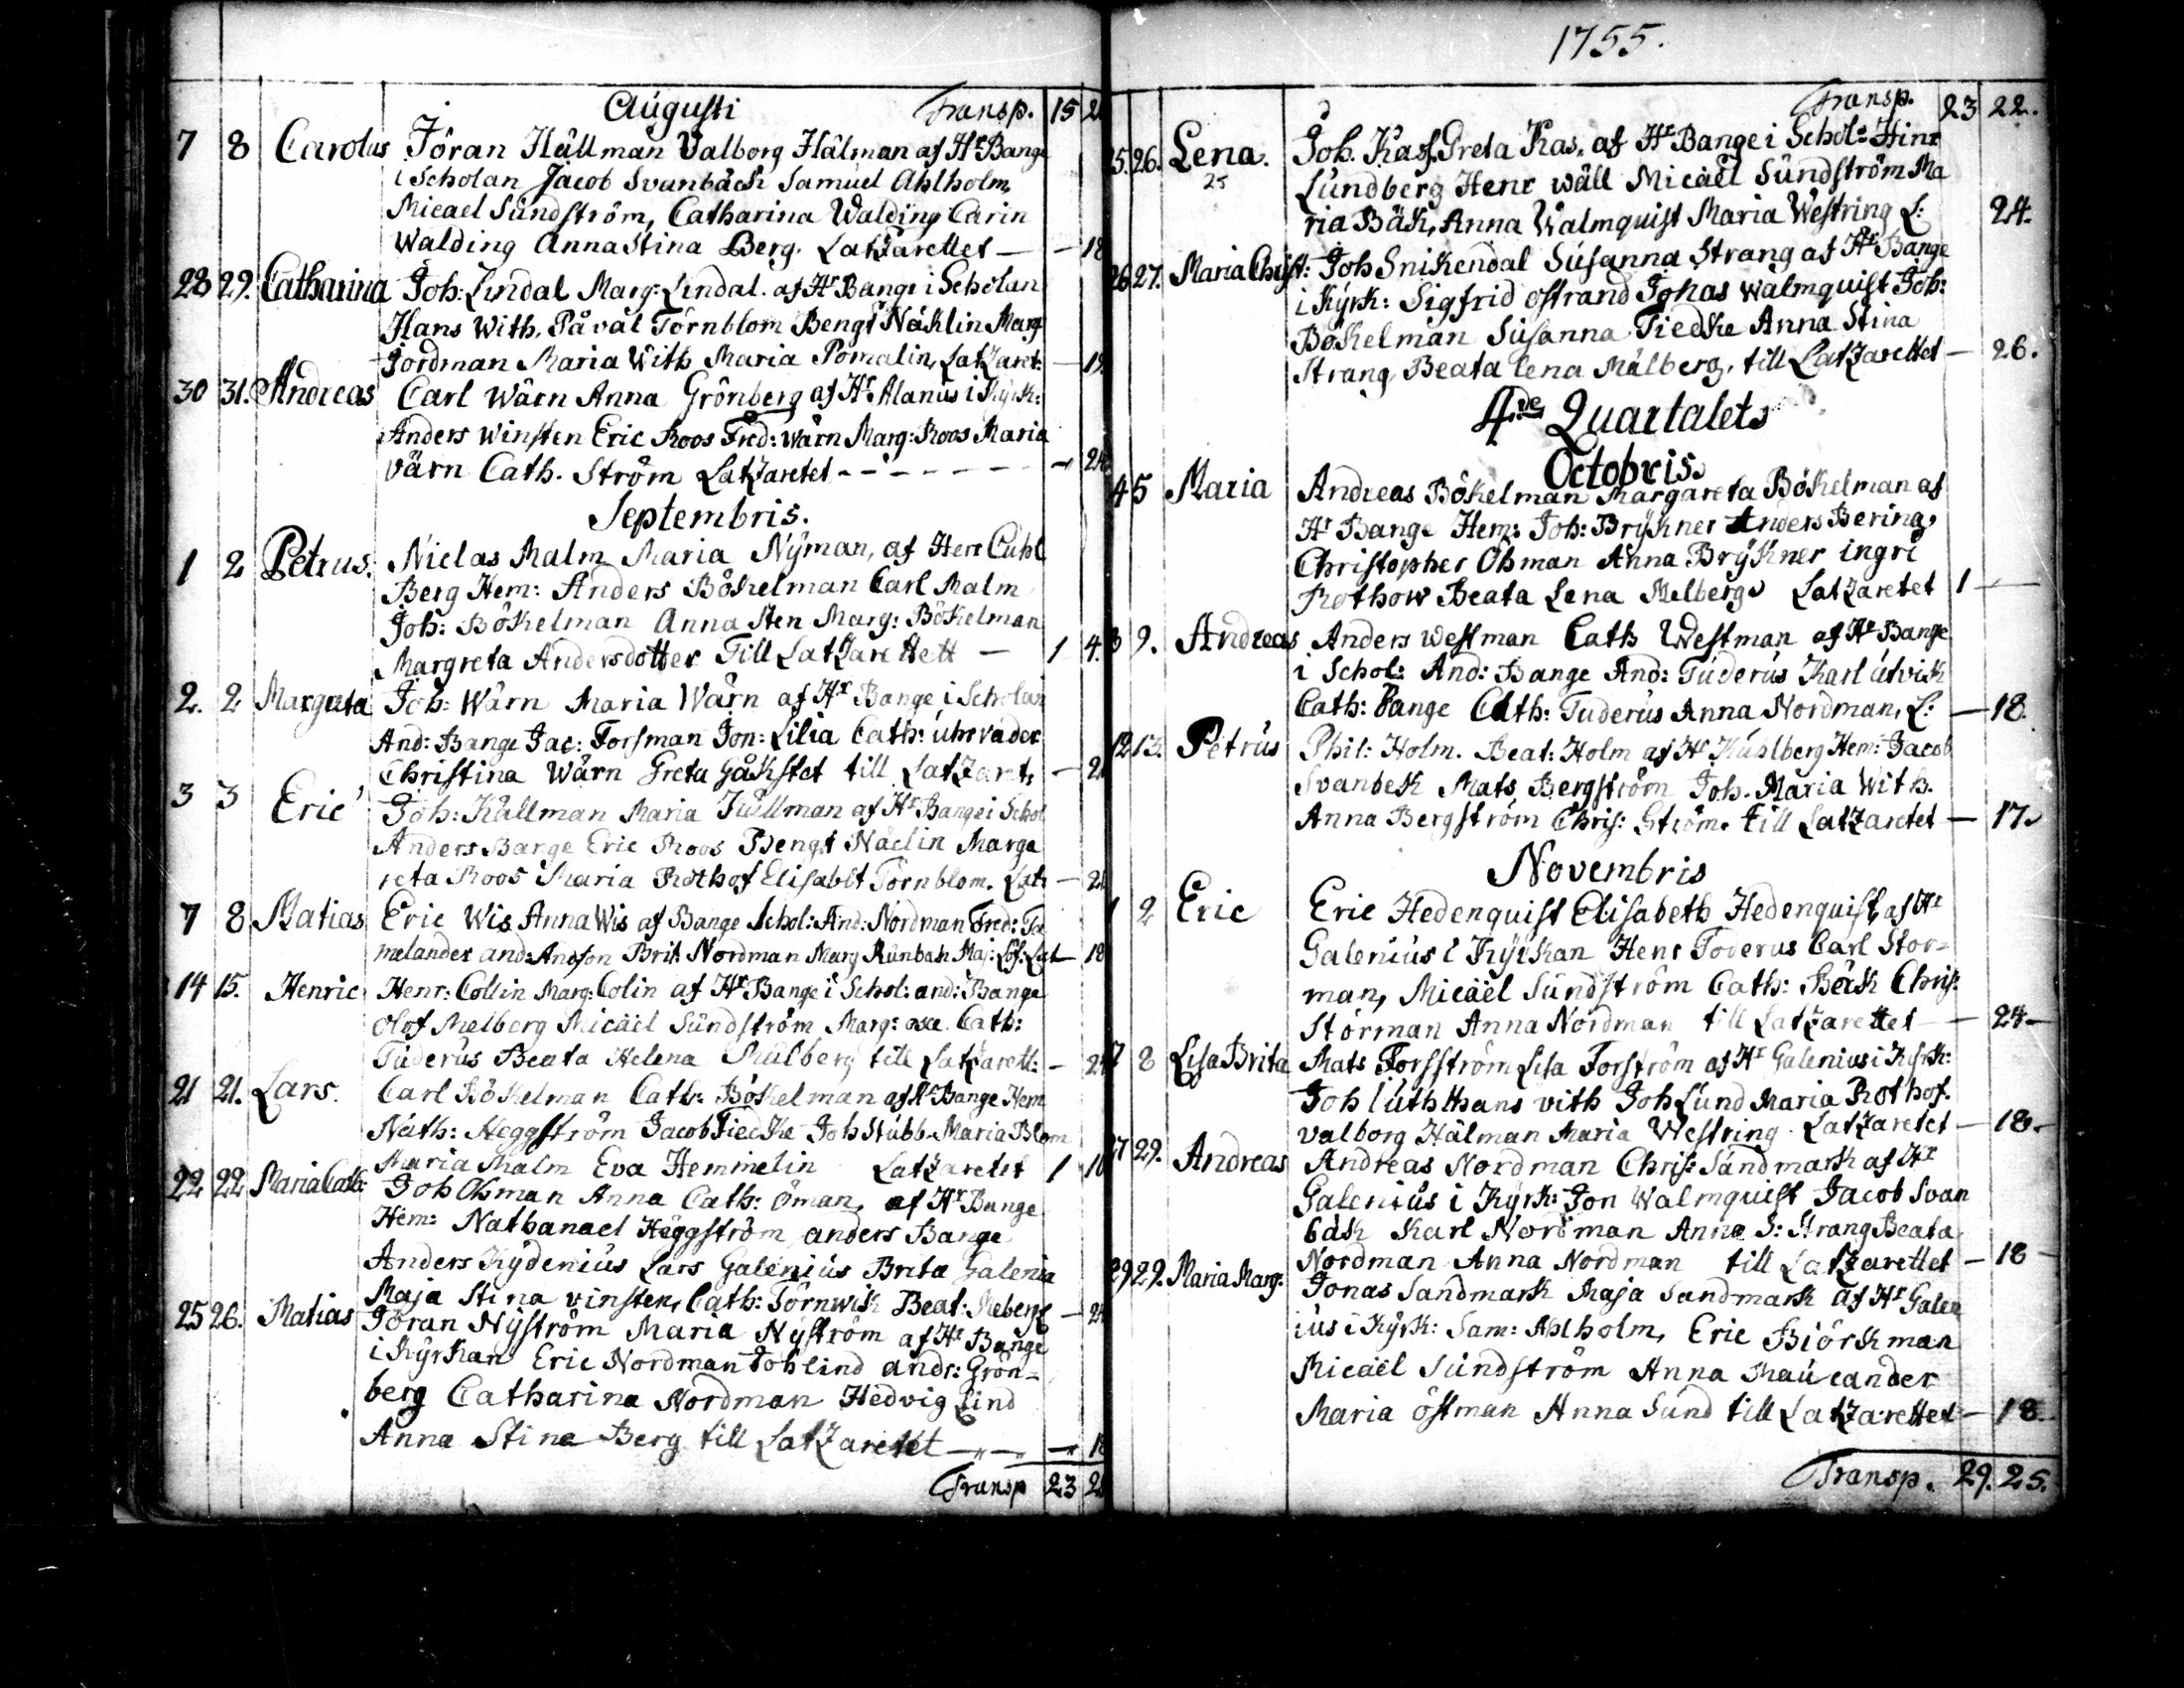 Augusti Transp. 15 2
7 8 Carolus Jöran Hållman Valborg Hålman af Hr Bange
i Scholan Jacob Svanbäck Samuel Ahlholm,
Micael Sundström, Catharina Walding Carin
Walding Anna Stina Berg. Latzarettet — — 18
28 29. Catharina Joh: Lindal Marg: Lindal. af Hr Bange i Scholan
Hans With, Påvål Törnblom Bengt Näklin Marg:
Jordman Maria With Maria Pomalin, Latzaret: — 19
30 31. Andreas Carl Wärn Anna Grönberg af Hr Alanus i Kyrk:
Anders Winsten Eric Roos Fred: Wärn Marg: Roos Maria
värn Cath. Ström Latzaretet - - - - - - — 24
Septembris.
1 2 Petrus. Niclas Malm Maria Nyman, af Herr Cuhl
Berg Hem: Anders Bökelman Carl Malm
Joh: Bökelman Anna Sten Marg: Bökelman
Margreta Andersdotter Till Latzarettett — 1 4.
2. 2 Margreta Joh: Wärn Maria Wärn af Hr Bange i Scholan
And: Bange Jac: Forsman Jon: Lilia Cath: uhrväder
Christina Wärn Greta till Latzaret: — 2
3 3 Eric Joh: Kållman Maria Kållman af Hr Bange i Schol
Anders Bange Eric Roos Bengt Näclin Marga
reta Roos Maria Rothof Elisabet Törnblom. Lat: — 2
7 8 Matias Eric Wis Anna Wis af Bange Schol: And: Nordman Fred: Ta
melander and: Andson Brit: Nordman Marg Runbäk Maj: Löf: Lat — 18
14 15. Henric Henr: Collin Marg: Colin af Hr Bange i Schol: and: Bange
Olof Melberg Micäel Sundström Marg: Cath:
Tuderus Beata Helena Mälberg till Latzarett: — 24
21 21. Lars. Carl Bökelman Cath: Bökelman af Hr Bange Hem
Nath: Heggström Jacob Tiecke Joh Stubb. Maria Blom
Maria Malm Eva Hemmelin Latzaretet 1 10
22 22 Maria Cath: Joh Ohman Anna Cath: öman, af Hr Bange
Hem: Nathanael Häggström anders Bange
Anders Kydenius Lars Galenius Brita Galenia
Maja Stina vinsten, Cath: Törnwik Beat: Meberg — 24
25 26. Matias Jöran Nyström Maria Nyström af Hr Bange
i Kyrkan Eric Nordman Joh lind andr: Grön-
berg Catharina Nordman Hedvig Lind
Anna Stina Berg till Latzarettet — — — 18
Transp 23 2
1755.
Transp. 23 22.
25. 26. Lena. Joh. Kasf. Greta Kas. af Hr Bange i Schol: Hinr
25 Lundberg Henr Wäll Micäel Sundström Ma
ria Bäk, Anna Walmquist Maria Westring L: 24.
26 27. Maria Christ: Joh Snikendal Susanna Strang af Hr Bange
i Kyrk: Sigfrid ostrand Johas Walmquist Joh:
Bökelman Susanna Tiecke Anna Stina
Strang Beata lena Mälberg. till Latzarettet — 26.
4de Quartalets
Octobris.
4 5 Maria Andreas Bökelman Margareta Bökelman af
Hr Bange Hem: Joh: Brykner Anders Bering,
Christopher Ohman Anna Brykner ingre
Rothow Beata Lena Melberg. Latzaretet 1 —
8 9. Andreas Anders Westman Cath Westman af Hr Bange
i Schol: And: Bange And: Tuderus Karl utvik
Cath: Bange Cath: Tuderus Anna Nordman, L: — 18.
12 13. Petrus Phil: Holm. Beat: Holm af Hr Kuhlberg Hem: Jacob
Svanbek Mats Bergström Joh. Maria With.
Anna Bergström Chris: Ström. till Latzaretet — 17.
Novembris
1 2 Eric Eric Hedenquist Elisabeth Hedenquist af Hr
Galenius i Kyrkan Henr Toderus Carl Stor-
man, Micäel Sundström Cath: Bäck Chris:
Störman Anna Nordman till Latzarettet — 24 —
7 8 Lisa Brita Mats Forsström Lisa Forström af Hr Galenius i Kyrk:
Joh luth Hans vith Joh Lund Maria Rothof.
valborg Hälman Maria Westring. Latzaretet — 18.
27 29. Andreas Andreas Nordman Chris: Sandmark af Hr
Galenius i Kyrk: Jon Walmquist Jacob Svan
bäk Karl Nordman Anna S: Strang Beata
Nordman Anna Nordman till Latzarettet — 18 —
29 29. Maria Marg: Jonas Sandmark Maja Sandmark af Hr Galen
ius i Kyrk: Sam: Ahlholm, Eric Biörkman
Micäel Sundström Anna
Maria östman Anna Sund till Latzarettet — 18.
Transp. 29. 25.